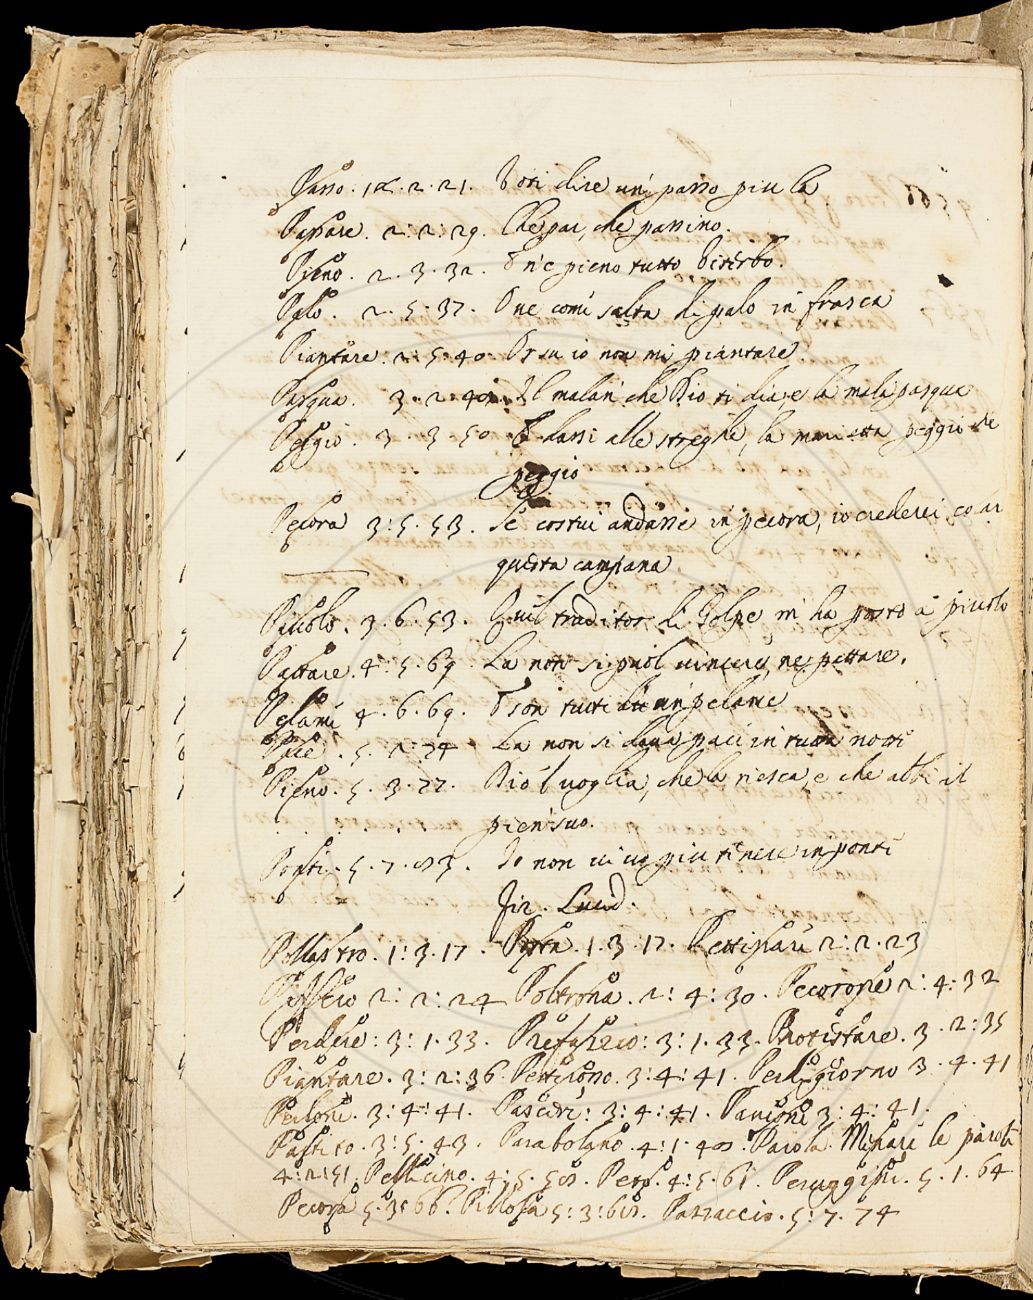 Passo. 2. 21. dire un passo piu la
Passare. 2: 2: 29. Che par, che passino.
Pieno. 2. 3. 32. E n'e pieno tutto Viterbo.
Palo. 2. 5. 37. One come salta di palo in frasca
Piantare. 2: 5: 40. Orsu io non mi piantare.
Pasqua. 3. 2. Il malan che Dio ti dia, e la mala pasqua
Peggio. 3. 3. 50 E darsi alle streghe, la peggio de
peggio
Pecora 3: 5. 53. Se costui andasse in pecora, io crederei,
questa campana
Piuolo. 3. 6. 53. Quel traditor di Volpe m'ha posto a piuolo
Pattare. 4: 5. 69. La non si puol uincere, ne pattare.
Pelame 4. 6. 69. E son tutti di un pelame
Pace. 5. 74 La non si paci in tutta notte
Pieno. 5. 3. 77. Dio 'l uoglia, che la riesca, e che abbi il
pien suo.
Ponti. 5. 7. 83. Io non ui uo piu tenere in ponti
Lucid.
Pollastro. 1: 3. 17. 1. 3. 17. Pettinare 2: 2. 23
2: 2: 24 Poltrona. 2: 4: 30. Pecorone 2: 4: 32
Perdere: 3: 1. 33. Prefazio: 3: 1. 33. Protestare. 3. 2: 35
Piantare. 3: 2: 36. 3: 4: 41. Perdigiorno 3. 4. 41
3: 4: 41. Pascere: 3: 4: 41. 3: 4: 41.
Pastico. 3: 5. 43. Parabolano 4: 1. 48. Parola. Menare le parole
4: 2: 51. Pellicino. 4: 5. 58. 4: 5. 61. 5. 1. 64
Pecora 5. 3: 66. Pillola 5: 3: 68. Pazzaccio. 5: 7. 74